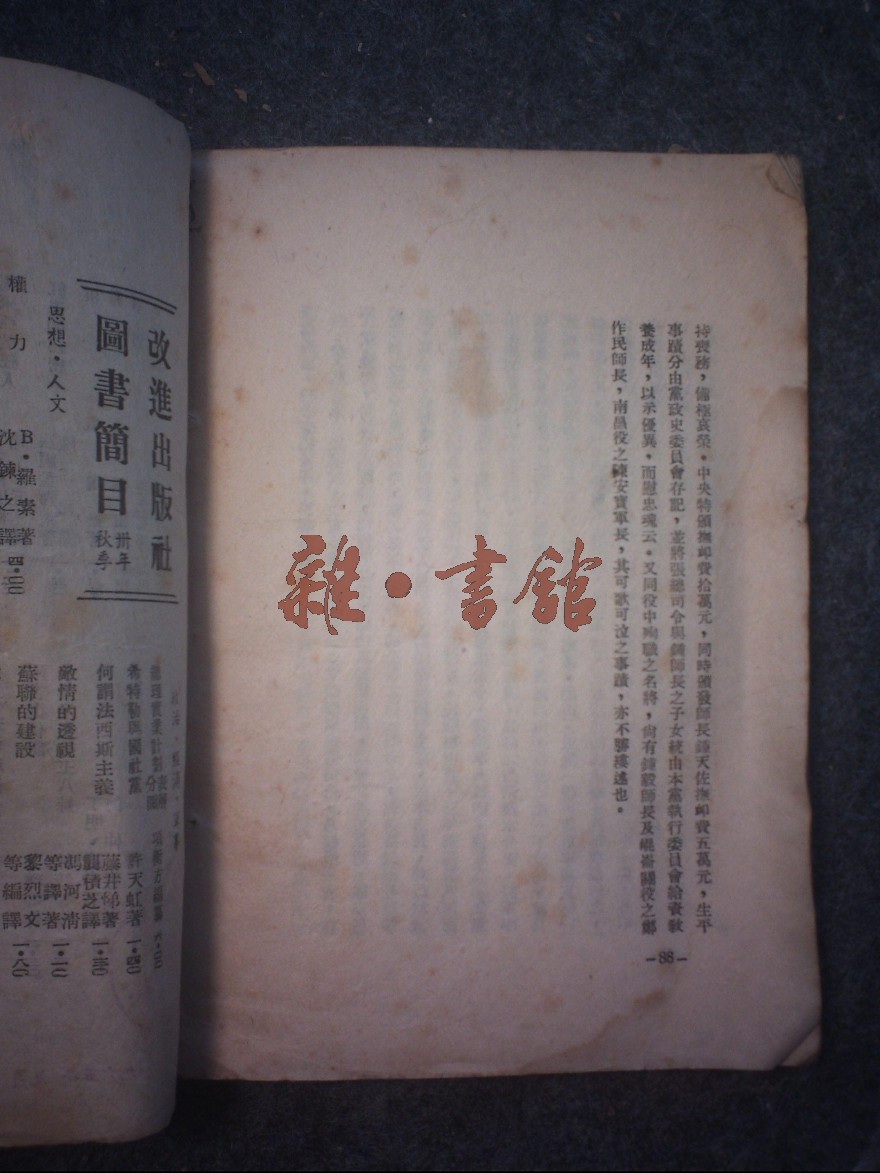 持喪務，備極哀榮。中央特頒撫卹費拾萬元，同時頒發師長鍾天佐撫卹費五萬元，生平
事蹟分由黨政史委員會存記，並將張總司令與鍾師長之子女統由本黨執行委員會給養教
養成年，以示優異，而慰忠魂云。又同役中殉職之名將，尙有鍾毅師長及崐崙關役之鄭
作民師長，南昌役之陳安寶軍長，其可歌可泣之事蹟，亦不勝縷述也。
—88—
雜·書館
改進出版社
圖書簡目
卅年
秋季
思想·人文
權力
B·羅素著
沈鍊之譯
四·〇〇
希特勒與國社黨
許天虹著
一·四〇
何謂法西斯主義
藤井悌著
譯
一·三〇
敵情的透視
馮河清
等譯著
一·一〇
蘇聯的建設
黎烈文
等編譯
一·八〇